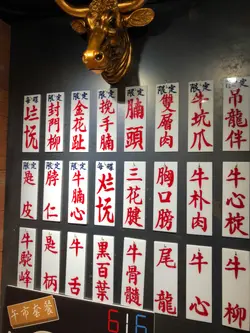 限定
封門柳
限定
金花趾
限定
挽手腩
限定
腩頭
限定
雙層肉
牛坑爪
限定
吊龍伴
限定
匙皮
限定
脖仁
限定
牛腩心
三花腱
胸口膀
牛朴肉
牛心椗
牛駝峰
匙柄
牛舌
黑百葉
牛骨髓
尾龍
牛心
牛柳
牛市套餐
616